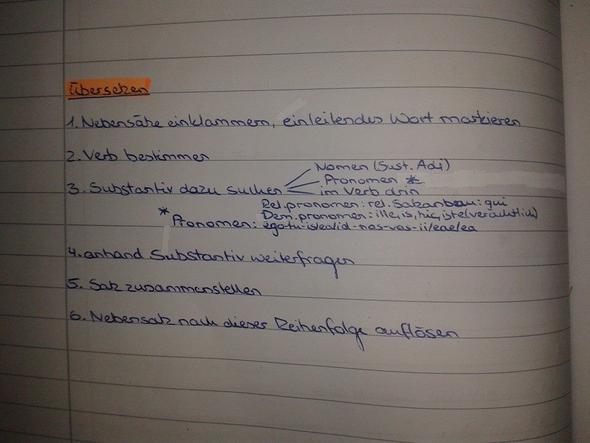 Übersetzen
1. Nebensätze einklammern, einleitendes Wort markieren
2. Verb bestimmen
3. Substantiv dazu suchen
Nomen (Sust. Adj)
Pronomen *
im Verb drin
Rel.pronomen: rel. Satzanbau: qui
Dem.pronomen: ille, is, hic, iste (verächtlich)
* Pronomen: ego-tu-is/ea/id-nos-vos-ii/eae/ea
4. anhand Substantiv weiterfragen
5. Satz zusammenstellen
6. Nebensatz nach dieser Reihenfolge auflösen